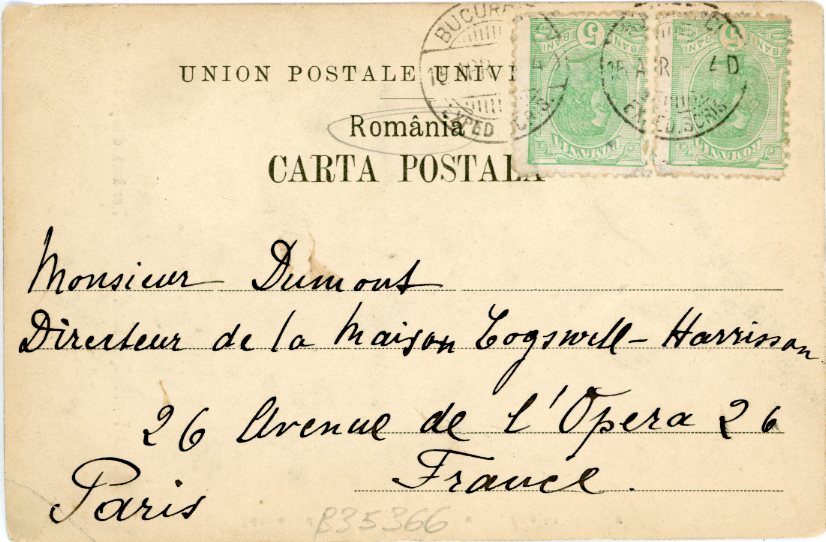 UNION POSTALE
România
CARTA POSTALA
BUCUR
EXPED
5 BANI
ROMANIA
5 BANI
ROMANIA
Monsieur Dumont
Directeur de la Maison Cogswell - Harrisson
26 Avenue de l'Opera 26
Paris France.
B35366